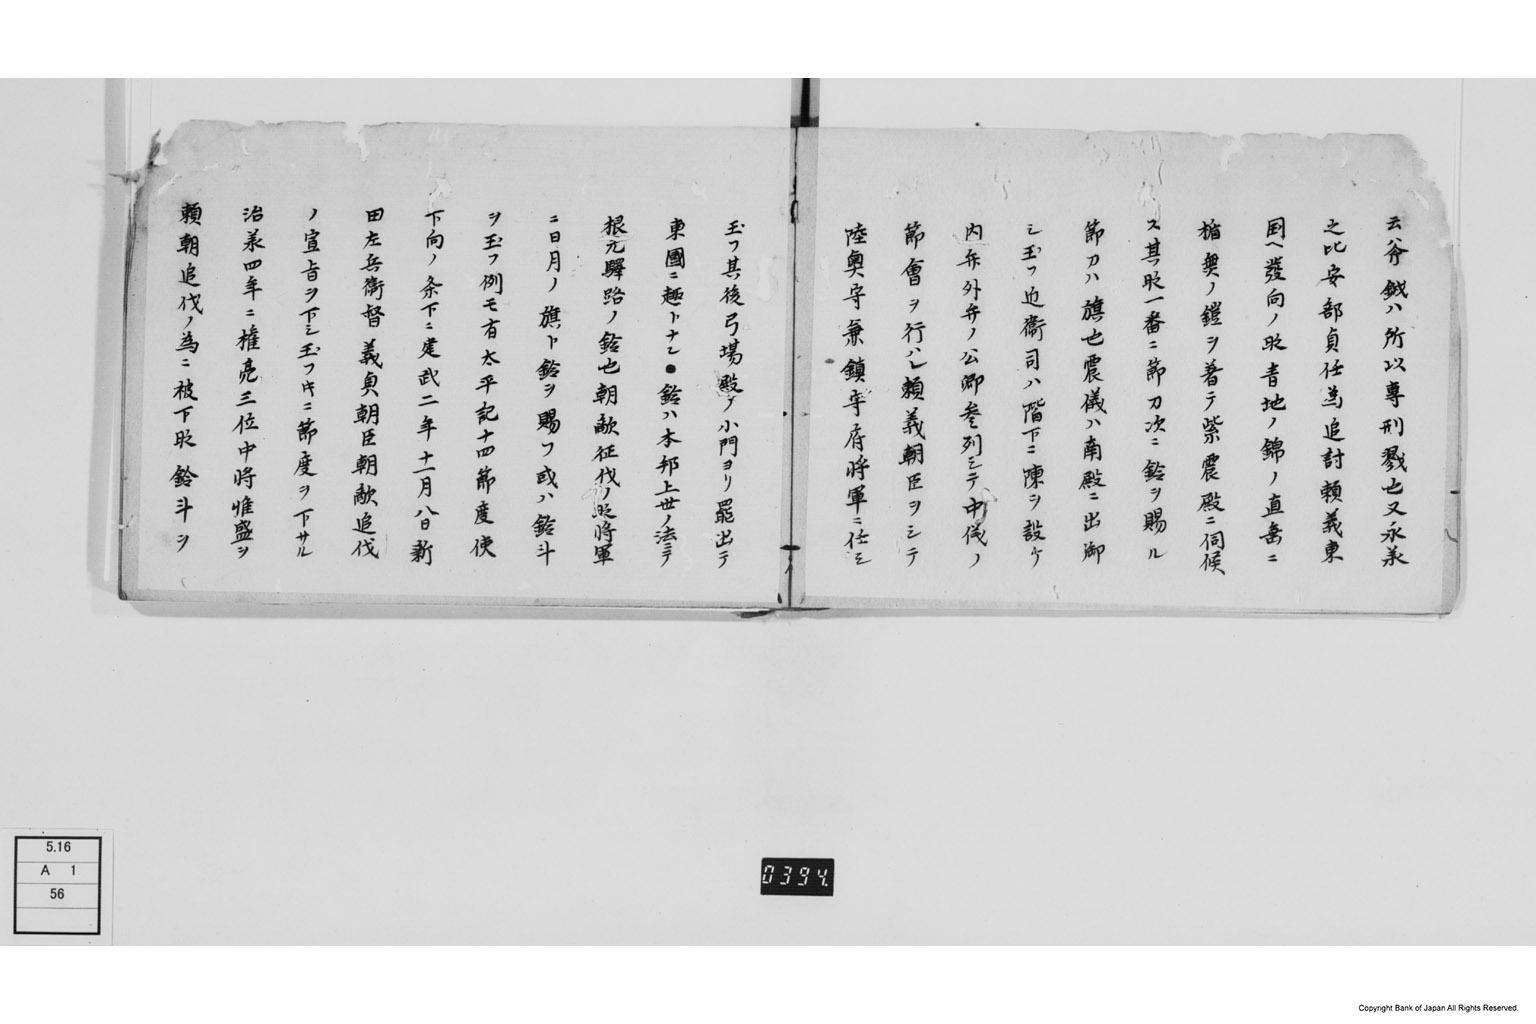 云斧鉞ハ所以専刑戮也又永承
之比安部貞任為追討頼義東
国ヘ發向ノ时青地ノ錦ノ直垂ニ
楯無ノ鎧ヲ着テ紫震殿ニ伺候
ス其时一番ニ節刀次ニ鈴ヲ賜ル
節刀ハ旗也震儀ハ南殿ニ出御
シ玉フ近衛司ハ階下ニ陳ヲ設ケ
内弁外弁ノ公卿参列シテ中儀ノ
節會ヲ行ハレ頼義朝臣ヲシテ
陸奥守兼鎮守府将軍ニ任シ
玉フ其後弓場殿ノ小門ヨリ罷出テ
東國ニ趣トナン●鈴ハ本邦上世ノ法ニテ
根元驛路ノ鈴也朝敵征伐ノ时将軍
ニ日月ノ旗ト鈴ヲ賜フ或ハ鈴斗
ヲ玉フ例モ有太平記十四節度使
下向ノ条下ニ建武二年十一月八日新
田左兵衛督義貞朝臣朝敵追伐
ノ宣旨ヲ下シ玉フキニ節度ヲ下サル
治承四年ニ権亮三位中将惟盛ヲ
頼朝追伐ノ為ニ被下时鈴斗ヲ
5.16
A 1
56
0394
Copyright Bank of Japan All Rights Reserved.